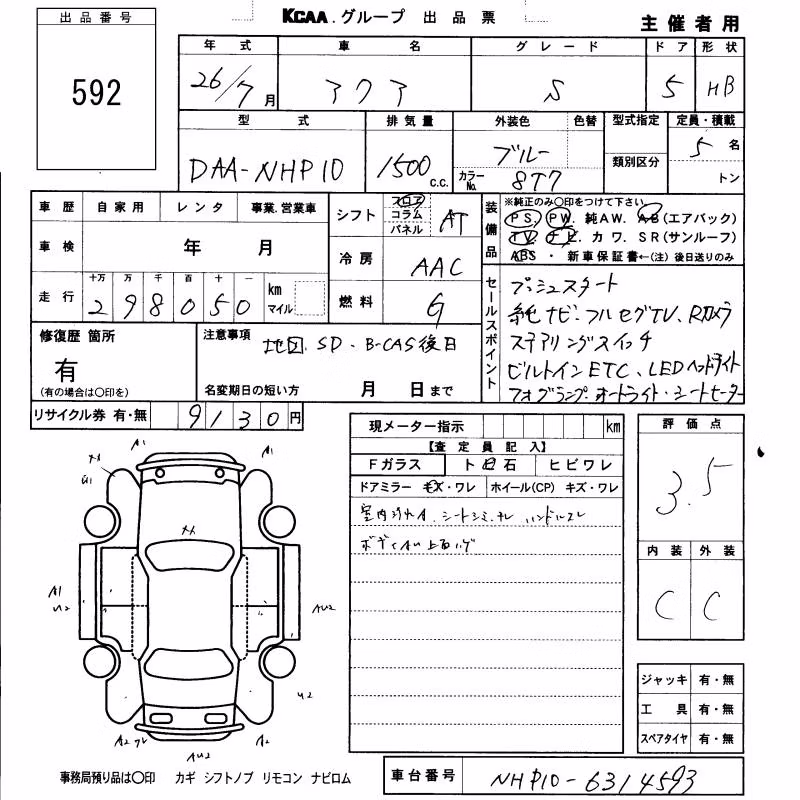 出品番号
592
KCAA.グループ 出品票
主催者用
年式 車名 グレード ドア 形状
26/7月 アクア S 5 HB
型式 排気量 外装色 色替 型式指定 定員・積載
類別区分
DAA-NHP10 1500c.c. ブルー カラーNo. 8T7 5名
トン
車歴 自家用 レンタ 事業.営業車
車検 年 月
走行 十万 万 千 百 十 一 km マイル
298050
シフト フロア コラム パネル AT
冷房 AAC
燃料 G
装備品
※純正のみ○印をつけて下さい
PS. PW. 純AW. AB(エアバック)
TV. ナビ. カワ. SR(サンルーフ)
ABS・新車保証書←(注)後日送りのみ
セールスポイント
プッシュスタート
純正ナビ・フルセグTV、Rカメラ
ステアリングスイッチ
ビルトインETC、LEDヘッドライト
フォグランプ・オートライト・シートヒーター
修復歴 箇所
有
(有の場合は○印を)
注意事項
地図、SD・B-CAS後日
名変期日の短い方 月 日まで
リサイクル券 有・無 9130円
現メーター指示 km
【査定員記入】
Fガラス トビ石 ヒビワレ
ドアミラー キズ・ワレ ホイール(CP) キズ・ワレ
評価点
3.5
内装 外装
C C
A1
A1
U1
A1
U2
AU2
U2
A2
AU2
A2
ジャッキ 有・無
工具 有・無
スペアタイヤ 有・無
事務局預り品は○印 カギ シフトノブ リモコン ナビロム
車台番号 NHP10-6314593